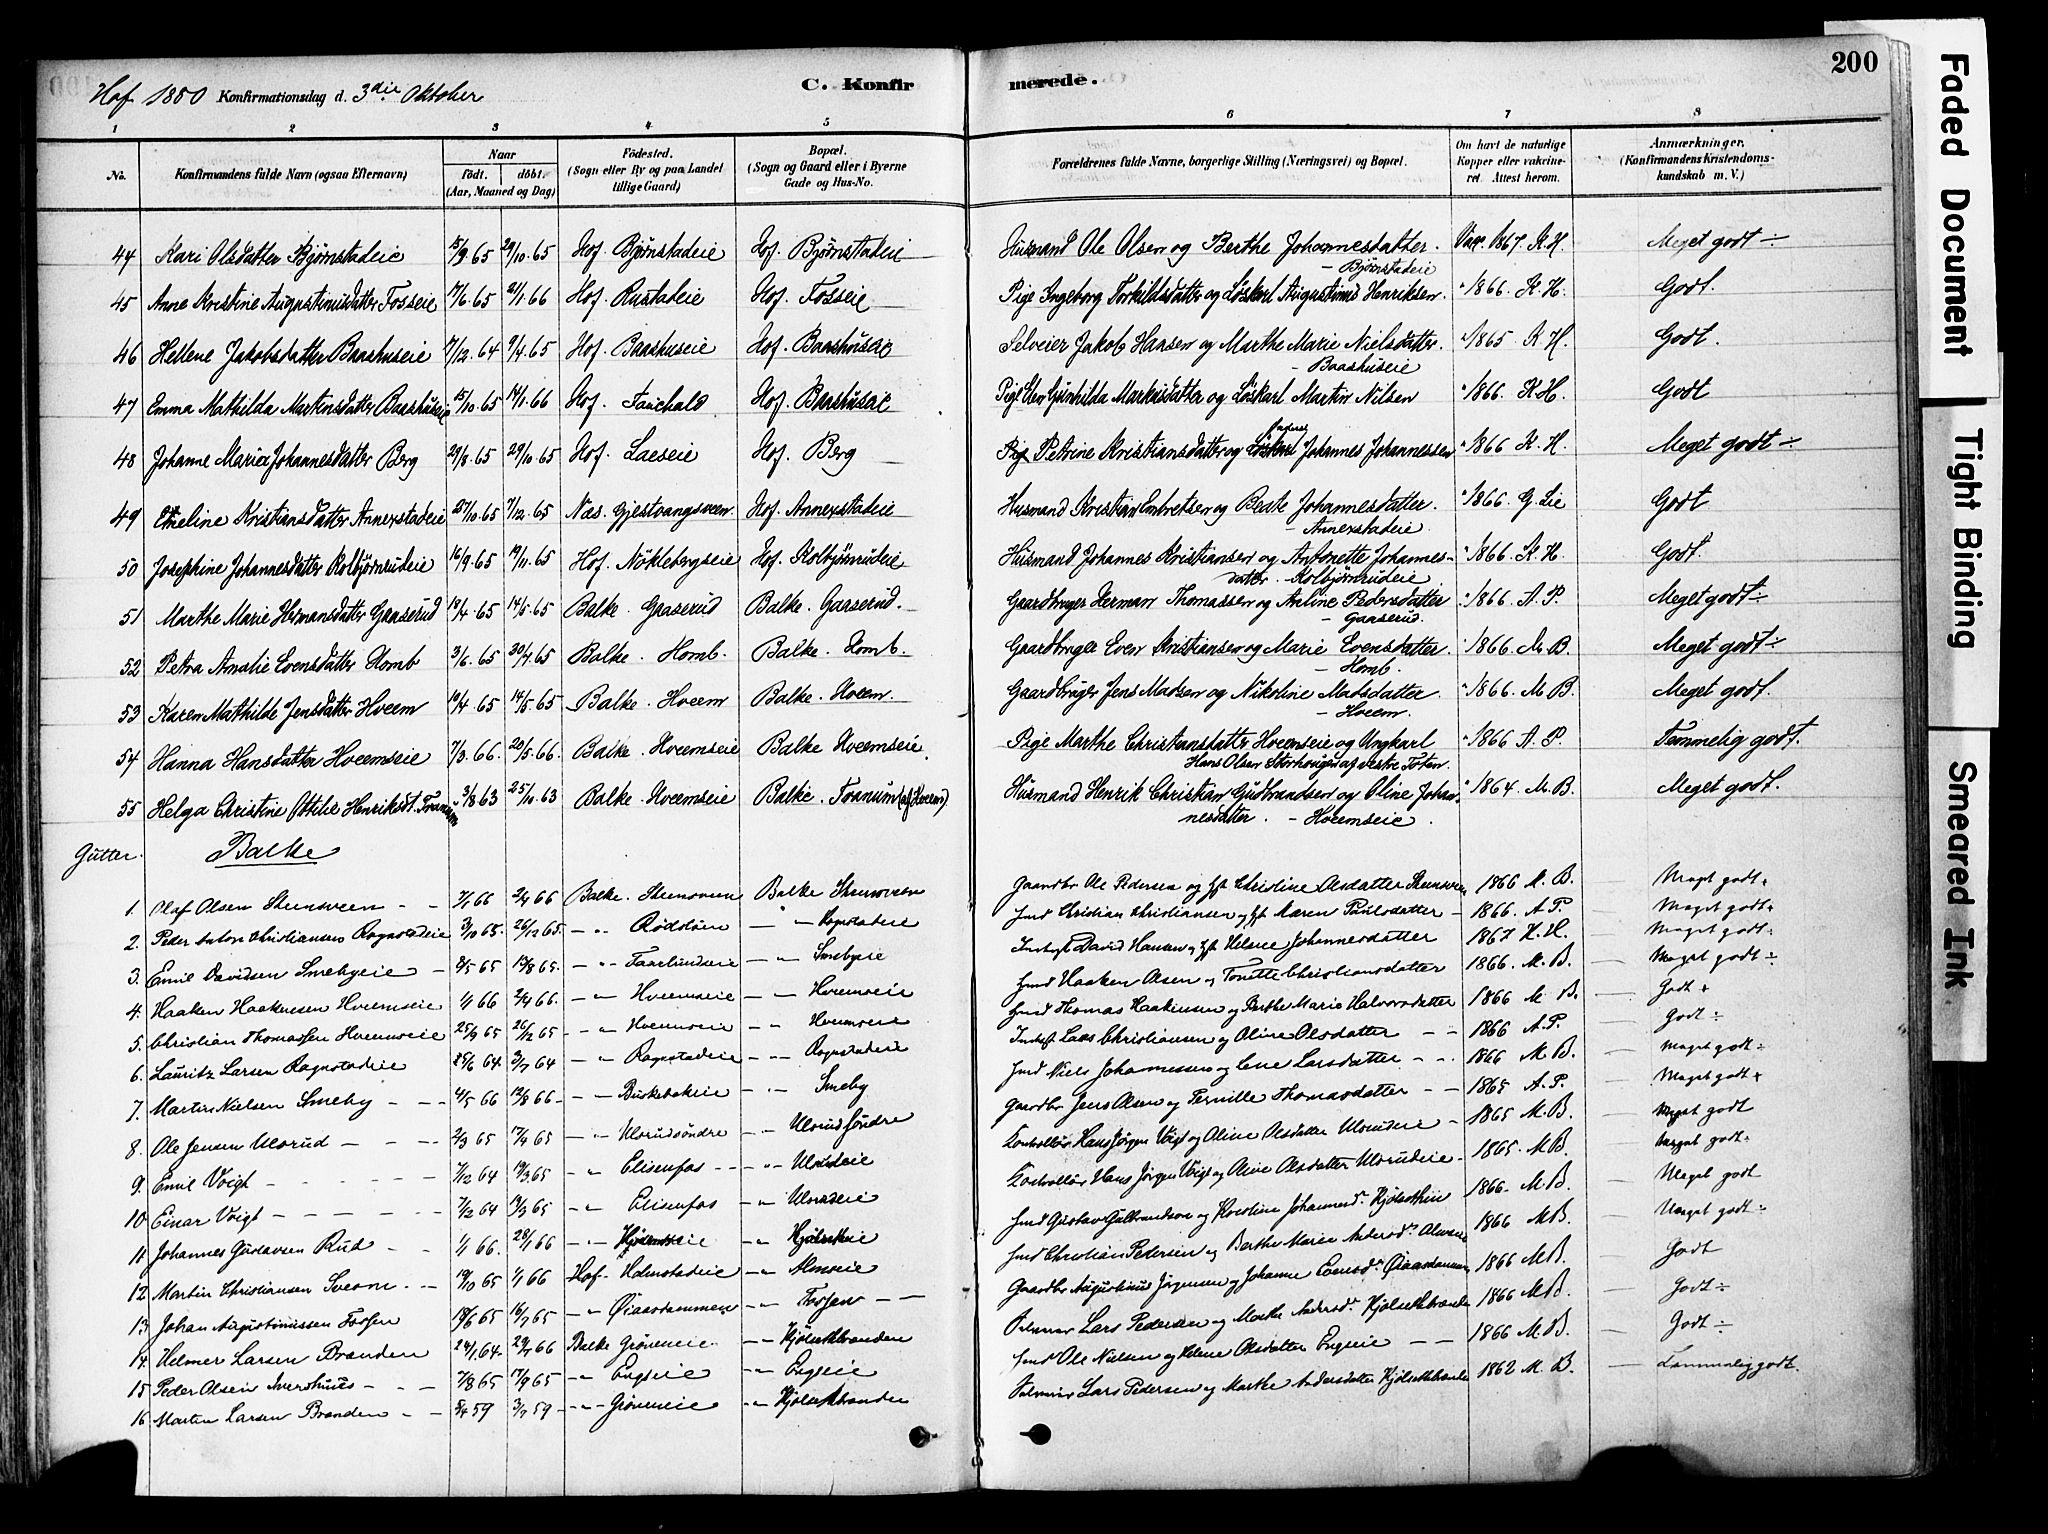 200
Hof 1880 Konfirmationsdag d. 3die Oktober C. Konfirmerede.
1 2 3 4 5 6 7 8
No. Konfirmandens fulde Navn (ogsaa Efternavn) Naar født. døbt. (Aar, Maaned og Dag) Fødested. (Sogn eller By og paa Landet tillige Gaard) Bopæl. (Sogn og Gaard eller i Byerne Gade og Hus-No. Forældrenes fulde Navne, borgerlige Stilling (Næringsvei) og Bopæl. Om havt de naturlige Kopper eller vakcineret. Attest herom. Anmærkninger. (Konfirmandens Kristendomskundskab m. V.)
44 Kari Olsdatter Bjørnstadeie 15/9.65 29/10.65 Hof. Bjørnstadeie Hof. Bjørnstadeie Husmand Ole Olsen og Berthe Johannesdatter. Vax. 1867. K.H. Meget godt ÷
- Bjørnstadeie
45 Anne Kristine Augustinusdatter Fosseie 17/6.65 21/1.66 Hof. Rustadeie Hof. Fosseie Pige Ingeborg Torkildsdatter og Løskarl Augustinus Henriksen. " 1866. K.H. Godt.
46 Hellene Jakobsdatter Baashuseie 7/12.64 9/4.65 Hof. Baashuseie Hof. Baashuseie Selveier Jakob Hansen og Marthe Marie Nielsdatter. " 1865 K.H. Godt.
- Baashuseie
47 Emma Mathilda Martinsdatter Baashuseie 15/10.65 14/1.66 Hof. Hof. Baashuseie Pige Gunhilda Markusdatter og Løskarl Martin Nilsen " 1866. K.H. Godt
48 Johanne Maria Johannesdatter Berg 29/8.65 29/10.65 Hof. Laeseie Hof. Berg Petrine Kristiansdatter og Johannes Johannessen " 1866 K.H. Meget godt ÷
49 Eteline Kristiansdatter Annexstadeie 25/10.65 7/12.65 Næs. Gjestvangsveen Hof. Annexstadeie Husmand Kristian Embretsen og Beate Johannesdatter. " 1866. G. Lie Godt
- Annexstadeie
50 Josephine Johannesdatter Kolbjørnrudeie 16/9.65 19/11.65 Hof. Nøklebergseie Hof. Kolbjørnrudeie Husmand Johannes Kristiansen og Antonette Johannes- " 1866. K.H. Godt.
datter. - Kolbjørnrudeie
51 Marthe Marie Hermansdatter Gaaserud 18/4.65 14/5.65 Balke. Gaaserud Balke. Gaaserud. Gaardbruger Herman Thomassen og Anline Pedersdatter " 1866. A.P. Meget godt ÷
- Gaaserud.
52 Petra Amalie Evensdatter Homb 3/6.65 30/7.65 Balke. Homb. Balke. Homb. Gaardbruger Even Kristiansen og Marie Evensdatter. " 1866. M.B. Meget godt ÷
- Homb.
53 Karen Mathilde Jensdatter Hveem 10/4.65 14/5.65 Balke. Hveem Balke. Hveem. Gaardbruger Jens Madsen og Nikoline Madsdatter " 1866. M.B. Meget godt.
- Hveem.
54 Hanna Hansdatter Hveemseie 7/3.66. 20/5.66. Balke. Hveemseie Balke Hveemseie. Pige Marthe Christiansdatter Hveemseie og Ungkarl " 1866 A.P. Temmelig godt.
Hans Olsen Storhougen af vestre Toten
55 Helga Christine Ottilie Henriksdt. Tranum 3/8 63 25/10.63 Balke. Hveemseie Balke. Tranum (af Hveem) Husmand Henrik Christian Gudbrandsen og Oline Johan- " 1864. M.B. Meget godt.
nesdatter. - Hveemseie.
Gutter. Balke
1. Olaf Olsen Steensveen 7/1 66 2/4 66 Balke. Steensveen Balke Steensveen Gaardbr Ole Pedersen og Christine Olsdatter Steensveen 1866 M.B. Meget godt
2. Peder Anton Christiansen Rognstadeie 3/10 65. 26/12 65. - " Rødsløen - " Rognstadeie Christian Christiansen og Maren Paulsdatter - 1866. A.P. Meget godt
3. Emil Davidsen Smebyeie 8/5 65 13/8 65. - " Taarlundeie - " Smebyeie David Hansen og Helene Johannesdatter 1867 K.H. Meget godt
4. Haaken Haakensen Hveemseie 1/1 66 2/4 66. - " Hveemseie - " Hveemseie Haaken Olsen og Tonette Christiansdatter 1866. M.B. Meget godt ÷
5. Christian Thomassen Hveemseie 25/9 65 26/12 65 - " Hveemseie - " Hveemseie Thomas Haakensen og Berthe Marie Halvorsdatter 1866 M.B. Godt
6. Lauritz Larsen Rognstadeie 25/6 64 3/7 64 - " Rognstadeie - " Rognstadeie Lars Christiansen og Oline Olsdatter 1866 A.P. Godt ÷
7. Martin Nielsen Smeby 4/5 66 12/8 66 - " Birkebakeie - " Smeby Niels Johannessen og Lene Larsdatter 1866 M.B. Meget godt
8. Ole Jensen Ulsrud 2/3 65 17/4 65 - " Ulsrudsøndre - " Ulsrud søndre Gaardbr Jens Olsen og Pernille Thomasdatter 1865 A.P. Meget godt
9. Emil Voigt 7/12 64 19/3 65 - " Elisenfos - " Ulsrudeie Kontrollør Hans Jørgen Voigt og Oline Olsdatter Ulsrudeie 1865 M.B. Meget godt
10 Einar Voigt 7/12 64 19/3 65 - " Elisenfos - " Ulsrudeie Kontrollør Hans Jørgen Voigt og Oline Olsdatter Ulsrudeie 1865. M.B. Meget godt
11 Johannes Gustavsen Rud 1/1 66. 28/1 66 - " - " Gustav Gulbrandsen og Karoline Johannesd. 1866. M.B. Meget godt
12 Martin Christiansen Sveom 19/10 65 1/1 66 Hof. Holmstadeie - " Almseie Christian Pedersen og Berthe Marie Andersd. 1866 M.B. Meget godt
13 Johan Augustinussen Fossen 18/6 65 16/7 65 - " Øiaasdammen - " Fossen Gaardbr Augustinus Jørgensen og Johanne Evensd. Øiaasdammen 1866 M.B. Godt
14 Helmer Larsen Brænden 24/1 64. 29/7 66 Balke Grøneneie - " Kjølsethbrænden Selveier Lars Pedersen og Marthe Andersd. Kjølsethbrænden 1866 M.B. Godt ÷
15 Peder Olsen Svershuus 7/8 65 17/9 65 - " Engseie - " Engseie Ole Nielsen og Helene Olsdatter Engseie 1866 M.B. Godt ÷
16 Martin Larsen Brænden 5/4 59 3/7 59 - " Grøneneie - " Kjølsethbrænden Selveier Lars Pedersen og Marthe Andersdatter Kjølsethbrænden 1862 M.B. Temmelig godt.
Faded Document
Tight Binding
Smeared Ink